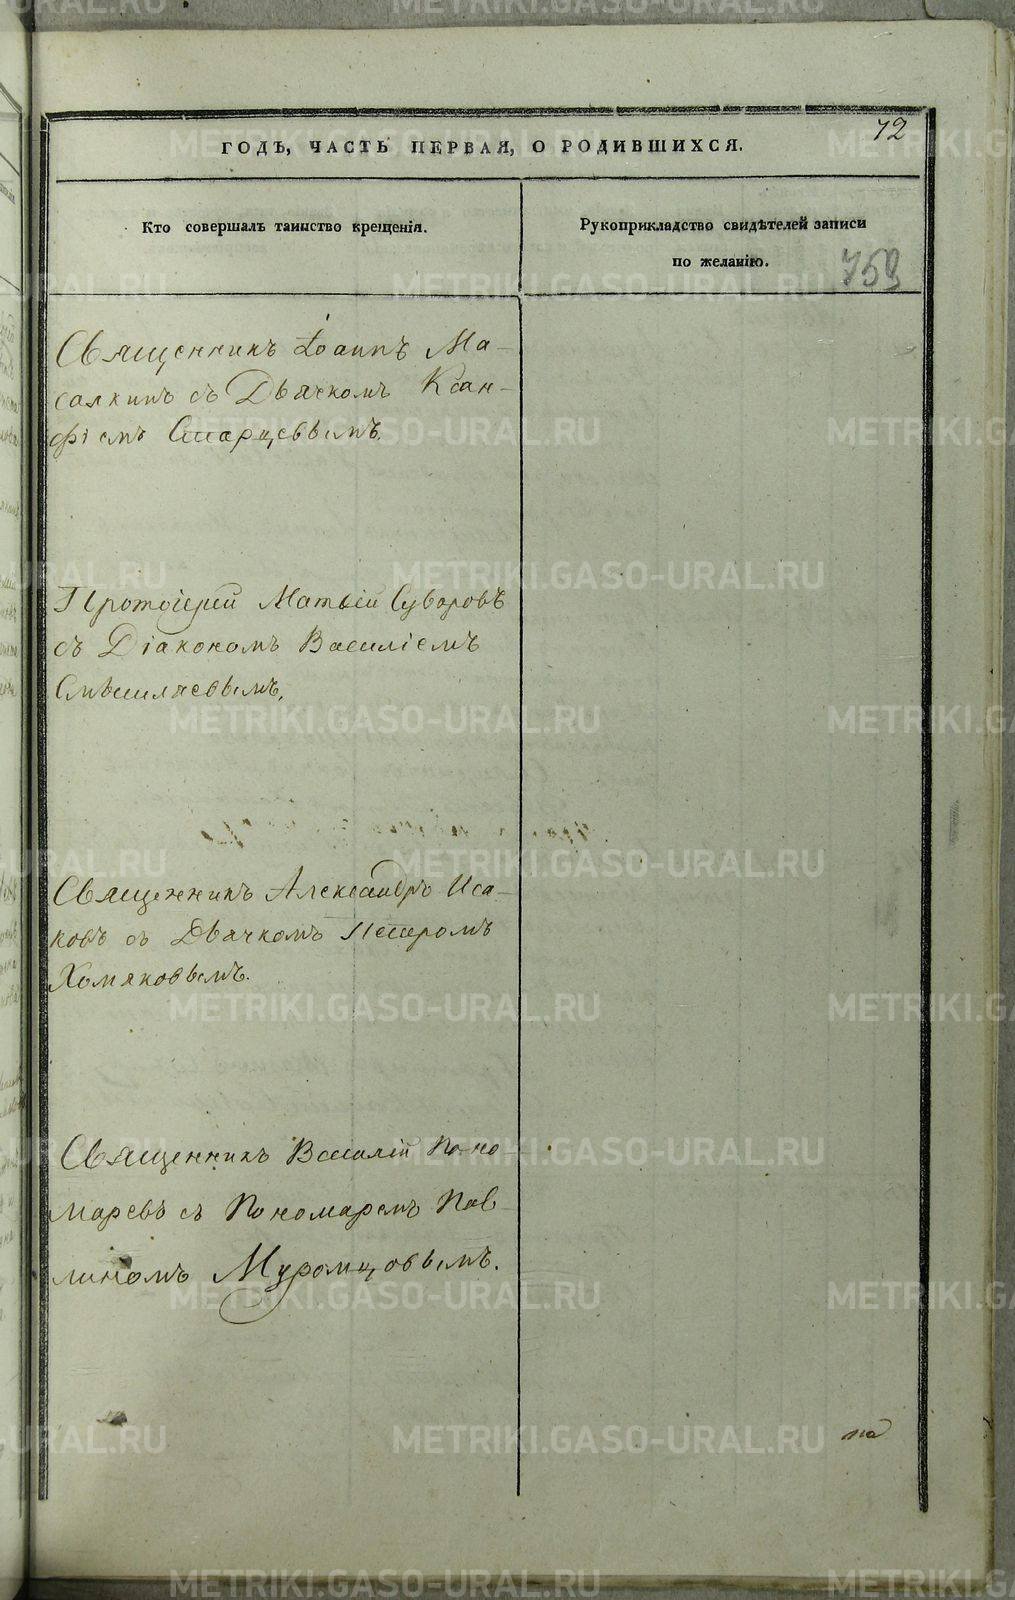 72
ГОДЪ, ЧАСТЬ ПЕРВАЯ, О РОДИВШИХСЯ.
Кто совершалъ таинство крещенія.
Рукоприкладство свидѣтелей записи
по желанію.
759
Священникъ Іоаннъ Ма-
салкинъ съ Дьячкомъ Ксан-
фіемъ Старцевымъ.
Протоіерей Матвій Суворовъ
съ Діакономъ Василіемъ
Смышляевымъ.
Священникъ Александръ Иса-
ковъ съ Дьячкомъ Петромъ
Хомяковымъ.
Священникъ Василій Поно-
маревъ съ Пономаремъ Пав-
линомъ Муромцовымъ.
на
METRIKI.GASO-URAL.RU